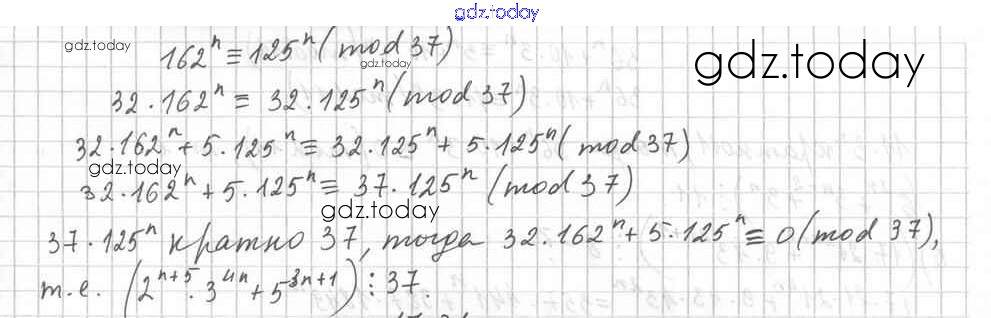 gdz.today
gdz.today
162ⁿ ≡ 125ⁿ (mod 37)
gdz.today
gdz.today
32·162ⁿ ≡ 32·125ⁿ (mod 37)
32·162ⁿ + 5·125ⁿ ≡ 32·125ⁿ + 5·125ⁿ (mod 37)
gdz.today
32·162ⁿ + 5·125ⁿ ≡ 37·125ⁿ (mod 37)
gdz.today
37·125ⁿ кратно 37, тогда 32·162ⁿ + 5·125ⁿ ≡ 0 (mod 37),
т.е. (2ⁿ⁺⁵·3⁴ⁿ + 5³ⁿ⁺¹) ⋮ 37.